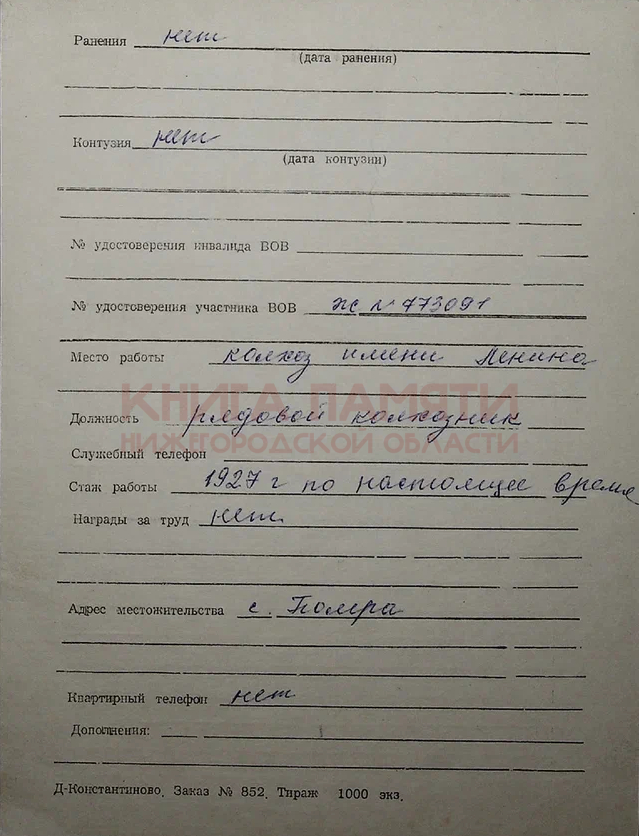 Ранения нет
(дата ранения)
Контузия нет
(дата контузии)
№ удостоверения инвалида ВОВ
№ удостоверения участника ВОВ ЖС № 473091
Место работы колхоз имени Ленина
КНИГА ПАМЯТИ
Должность рядовой колхозник
НИЖЕГОРОДСКОЙ ОБЛАСТИ
Служебный телефон
Стаж работы 1927 г по настоящее время
Награды за труд нет
Адрес местожительства с. Помра
Квартирный телефон нет
Дополнения:
Д-Константиново. Заказ № 852. Тираж 1000 экз.